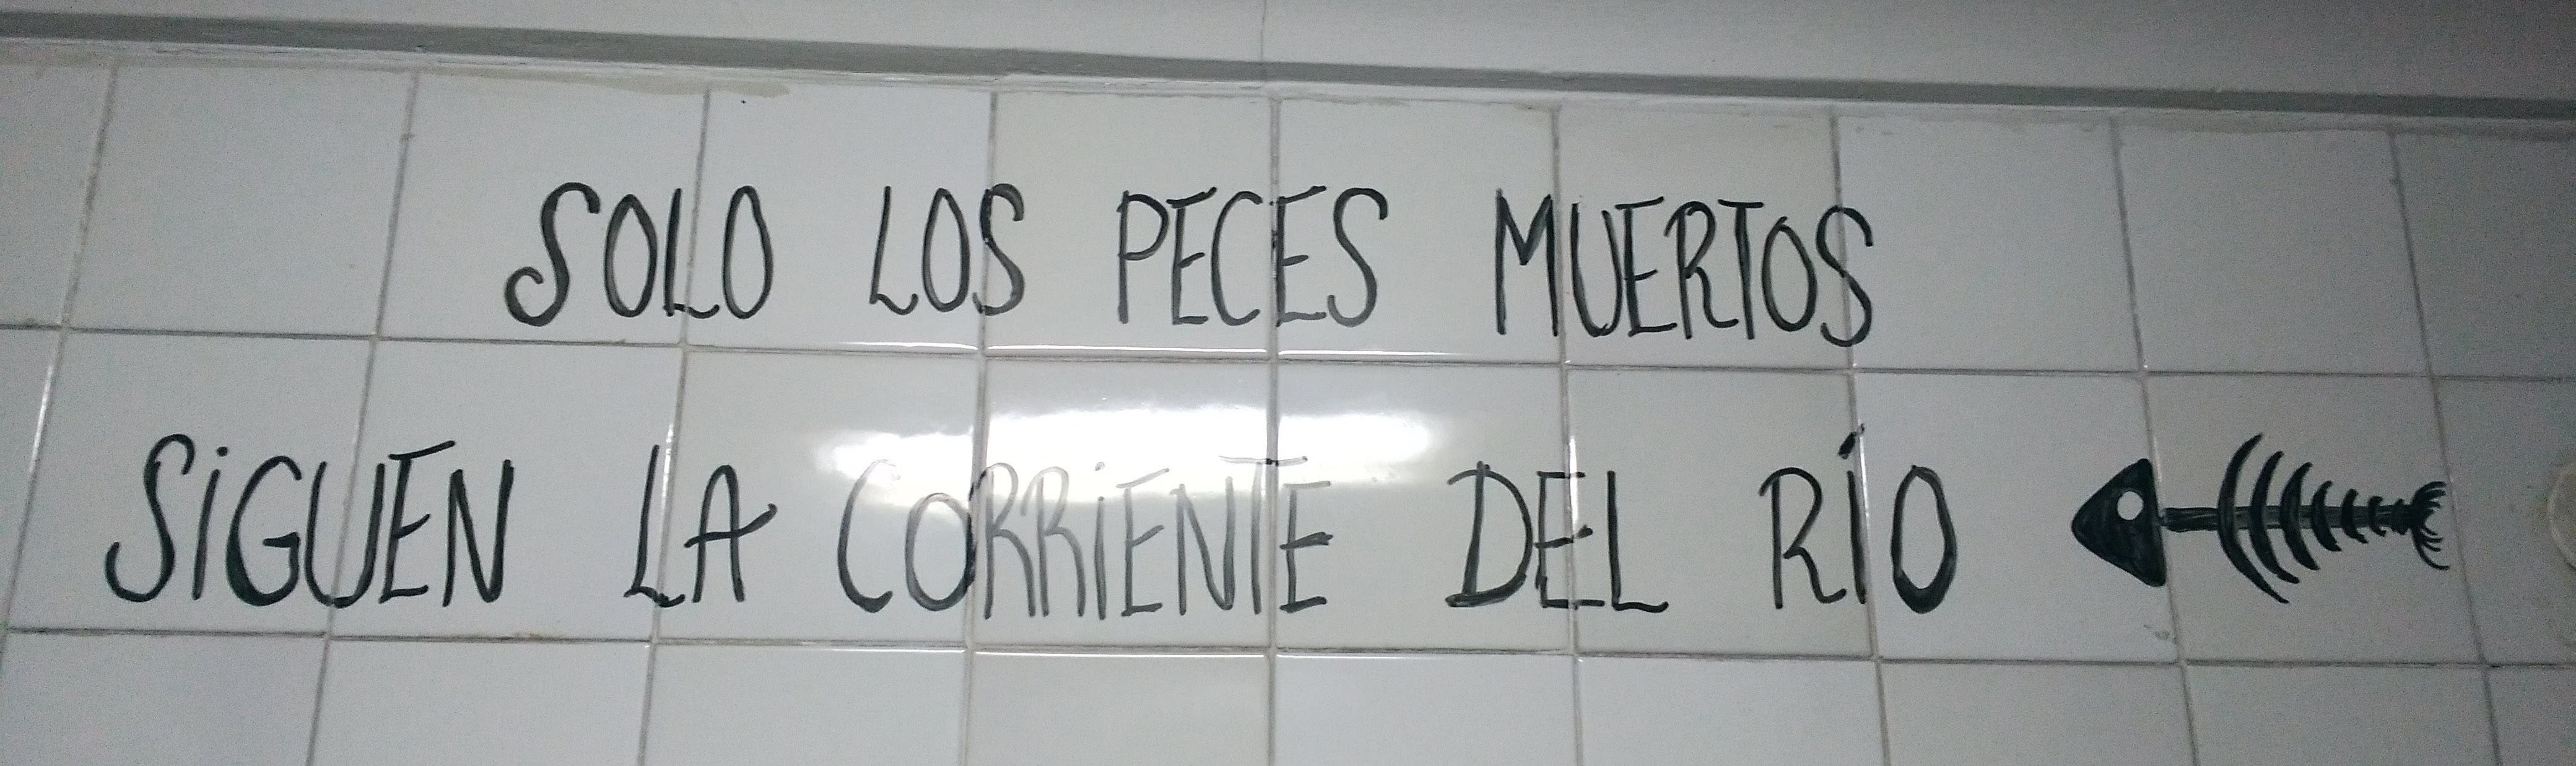 SOLO LOS PECES MUERTOS
SiGUEN LA CORRiENTE DEL RÍO